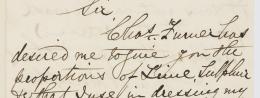 Sir
Chas. Turner has
desired me to give you the
proportions of Lime, Sulphur
& that I use in dressing my